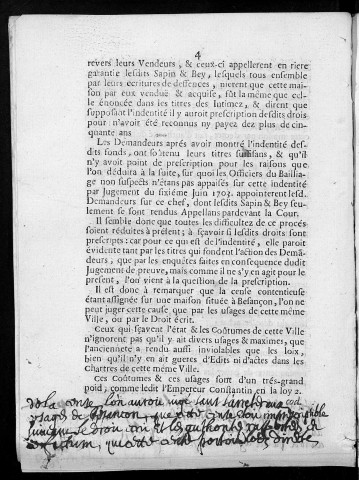 4
revers leurs Vendeurs, & ceux-ci appellerent en riere
garantie lesdits Sapin & Bey, lesquels tous ensemble
par leurs écritures de deffences, nierent que cette mai-
son par eux venduë & acquise, fût la même que cel-
le énoncée dans les titres des Intimez, & dirent que
supposant l'indentité il y auroit prescription desdits droits
pour n'avoit été reconnus ny payez dez plus de cin-
quante ans
Les Demandeurs aprés avoir montré l'indentité des-
dits fonds, ont soûtenu leurs titres suffisans, & qu'il
n'y avoit point de prescription pour les raisons que
l'on déduira à la suite, sur quoi les Officiers du Baillia-
ge non suspects n'étans pas appaisés sur cette indentité
par Jugement du sixiéme Juin 1703. appointerent lesd.
Demandeurs sur ce chef, dont lesdits Sapin & Bey seu-
lement se sont rendus Appellans pardevant la Cour.
Il semble donc que toutes les difficultez de ce procés
soient réduites à présent; à sçavoir si lesdits droits sont
prescripts: car pour ce qui est de l'indentité, elle paroit
évidente tant par les titres qui fondent l'action des Deman-
deurs, que par les enquêtes faites en consequence dudit
Jugement de preuve, mais comme il ne s'y en agit pour le
présent, l'on vient à la question de la prescription.
Il est donc à remarquer que la censé contentieuse
étant assignée sur une maison située à Besançon, l'on ne
peut juger cette cause que par les usages de cette même
Ville, ou par le Droit écrit.
Ceux qui sçavent l'état & les Coûtumes de cette Ville
n'ignorent pas qu'il y ait divers usages & maximes, que
l'ancienneté a rendu aussi inviolables que les loix,
bien qu'il n'y en ait guerres d'Edits ni d'actes dans les
Chartres de cette même Ville.
Ces Coûtumes & ces usages sont d'un trés-grand
poid, comme ledit l'Empereur Constantin en la loy 2.
cod.